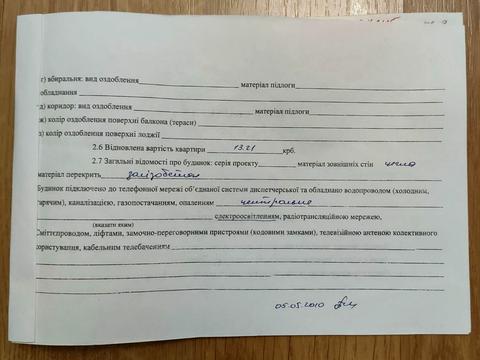 г) вбиральня: вид оздоблення________ матеріал підлоги________
обладнання________
д) коридор: вид оздоблення________ матеріал підлоги________
ж) колір оздоблення поверхні балкона (тераси)________
з) колір оздоблення поверхні лоджії________
2.6 Відновлена вартість квартири 1321 крб.
2.7 Загальні відомості про будинок: серія проєкту________ матеріал зовнішніх стін цегла
матеріал перекрить залізобетон
Будинок підключено до телефонної мережі об'єднаної системи диспетчерської та обладнано водопроводом (холодним,
гарячим), каналізацією, газопостачанням, опаленням центральне
________ електроосвітленням, радіотрансляційною мережею,
(вказати яким)
Сміттєпроводом, ліфтами, замочно-переговорними пристроями (кодовими замками), телевізійною антеною колективного
користування, кабельним телебаченням________
05.05.2010